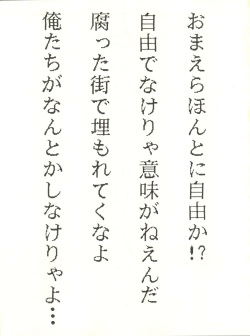 おまえらほんとに自由か!?
自由でなけりゃ意味がねえんだ
腐った街で埋もれてくなよ
俺たちがなんとかしなけりゃよ…